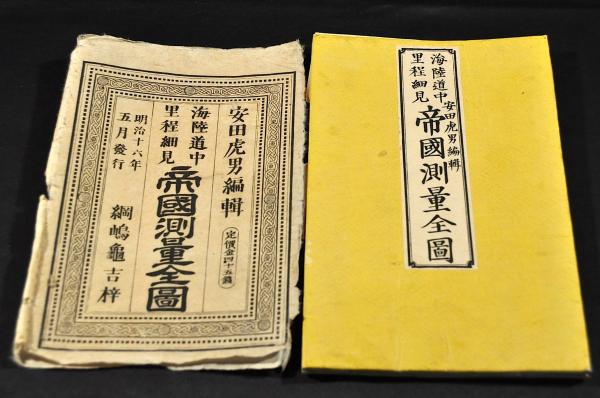 安田虎男編輯
定價金四十五錢
海陸道中
里程細見
帝國測量全圖
明治十六年
五月發行
綱嶋龜吉梓
海陸道中
里程細見
安田虎男編輯
帝國測量全圖